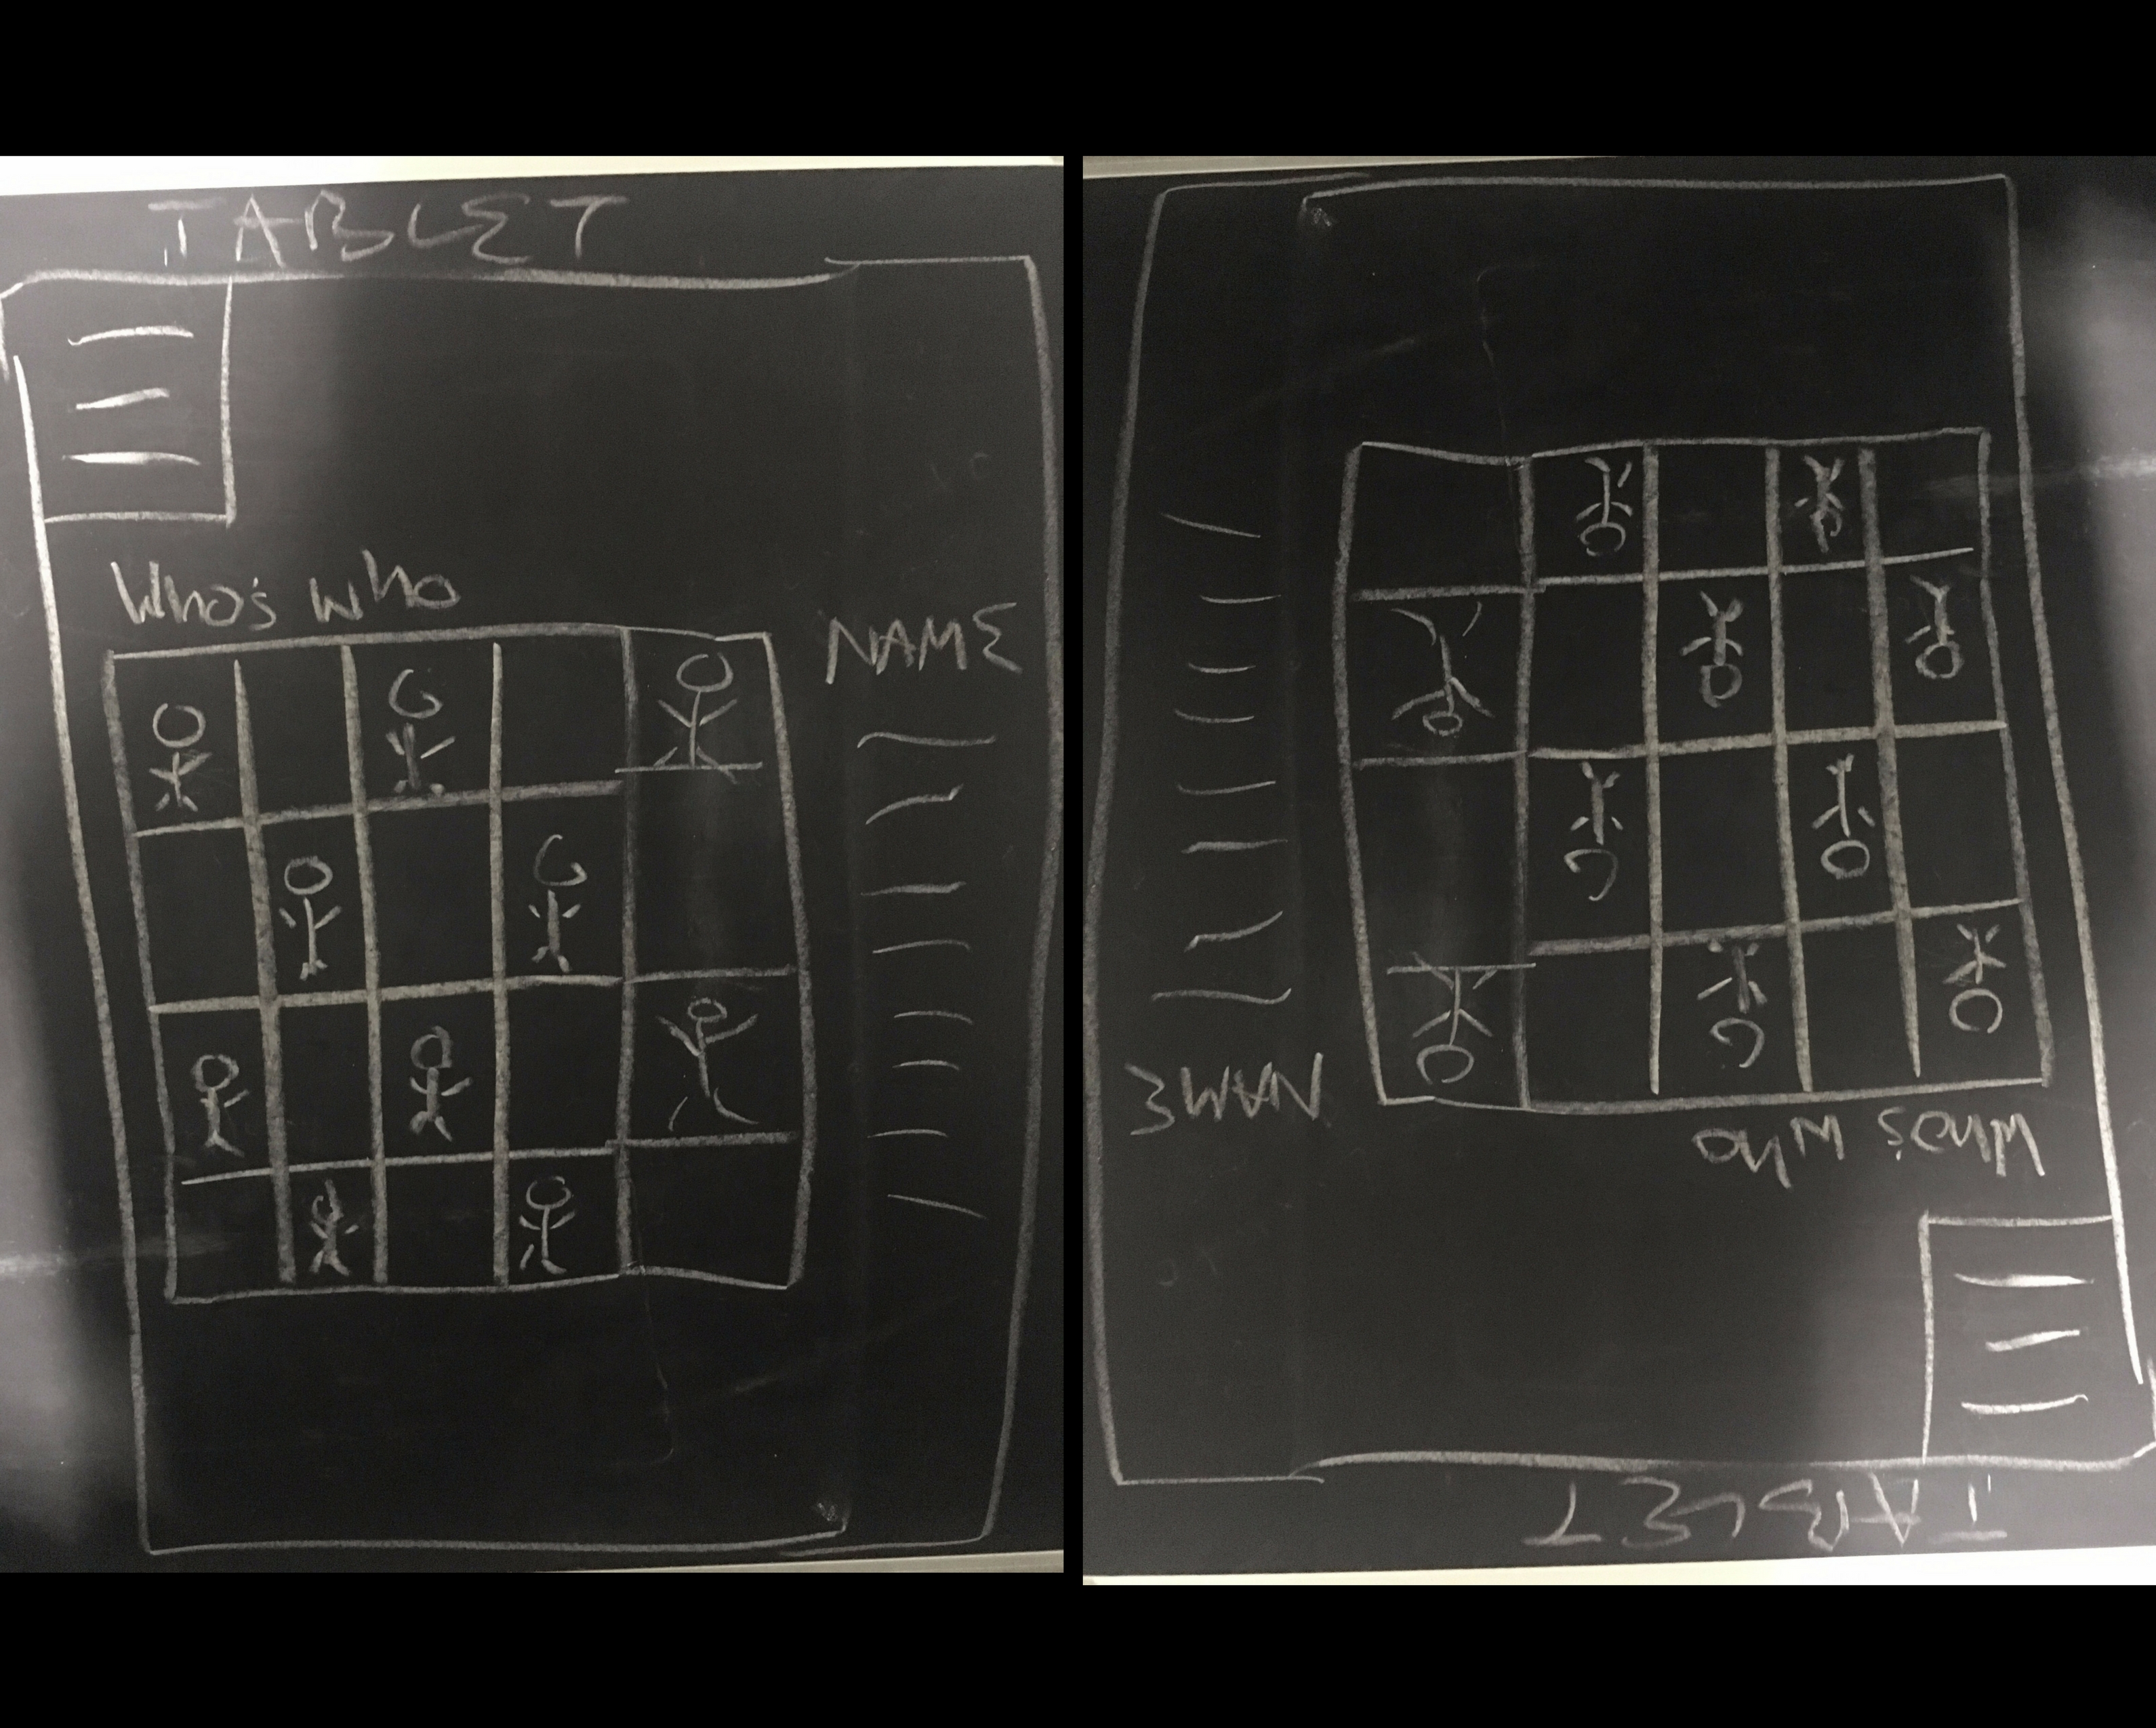 TABLET
Who's who
NAME
NAME
Who's who
TABLET